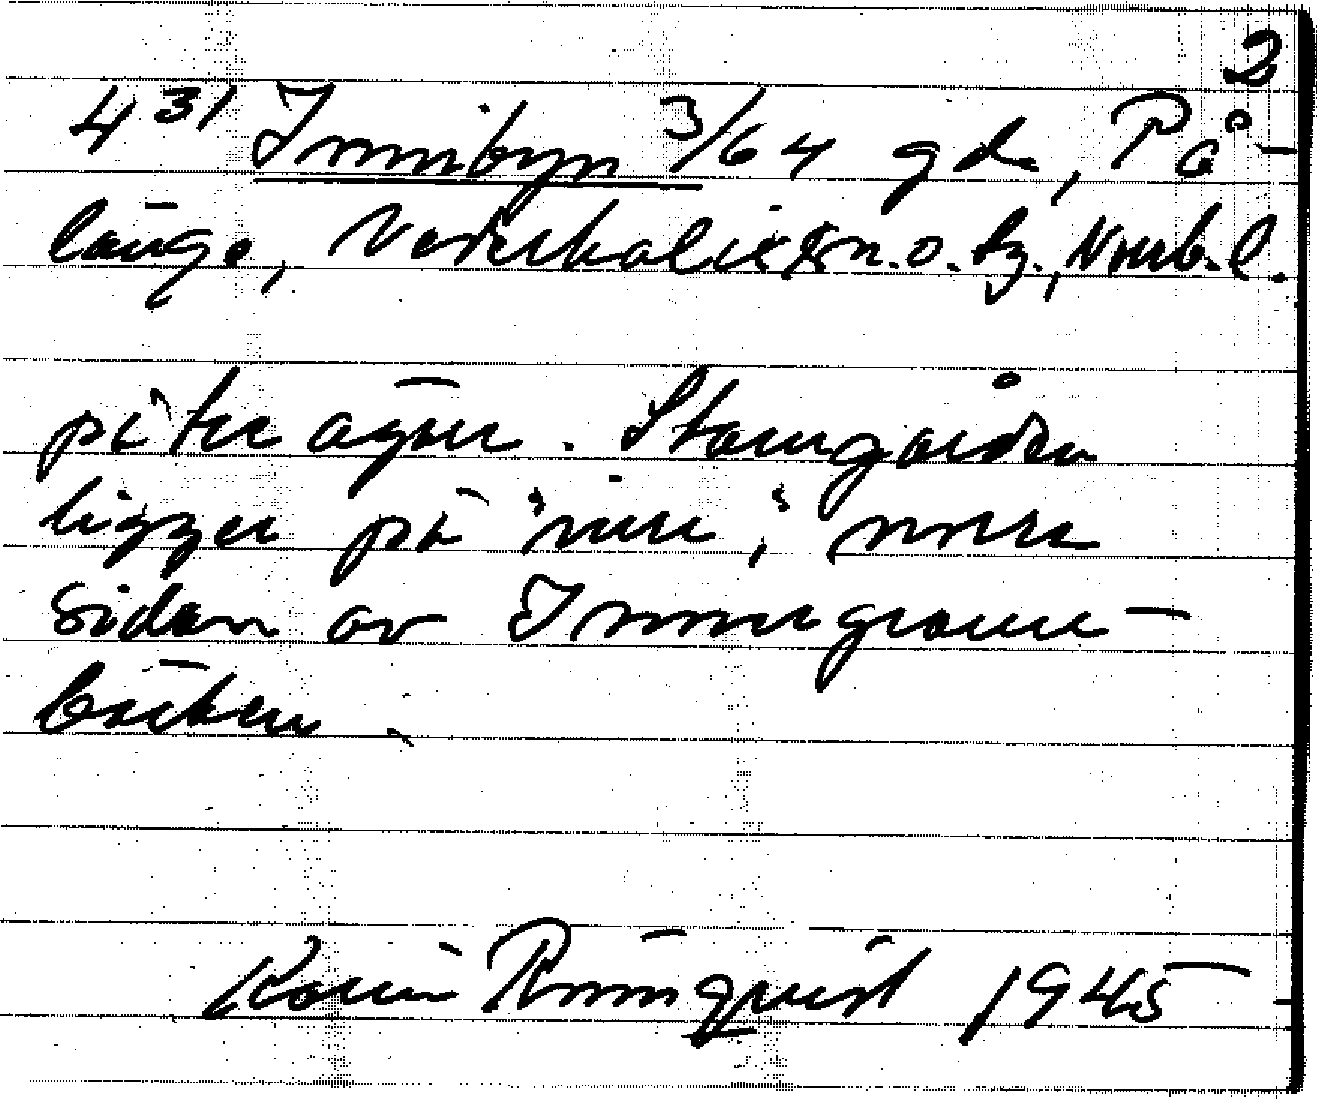 2
4³¹ Innibyn 3/64 gd, På-
länge, Nederkalix sn. o. tg., Norrb. l.
på tre ägare. Stamgården
ligger på "norr", norra
sidan av Innergranne-
bäcken.
Karin Rönnquist 1945